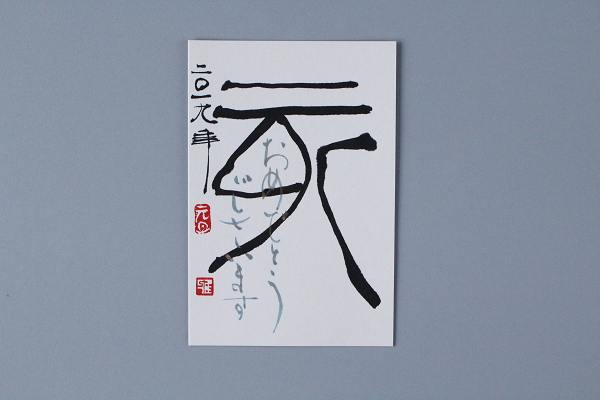 亥
おめでとう
ございます
二〇一九年
元旦